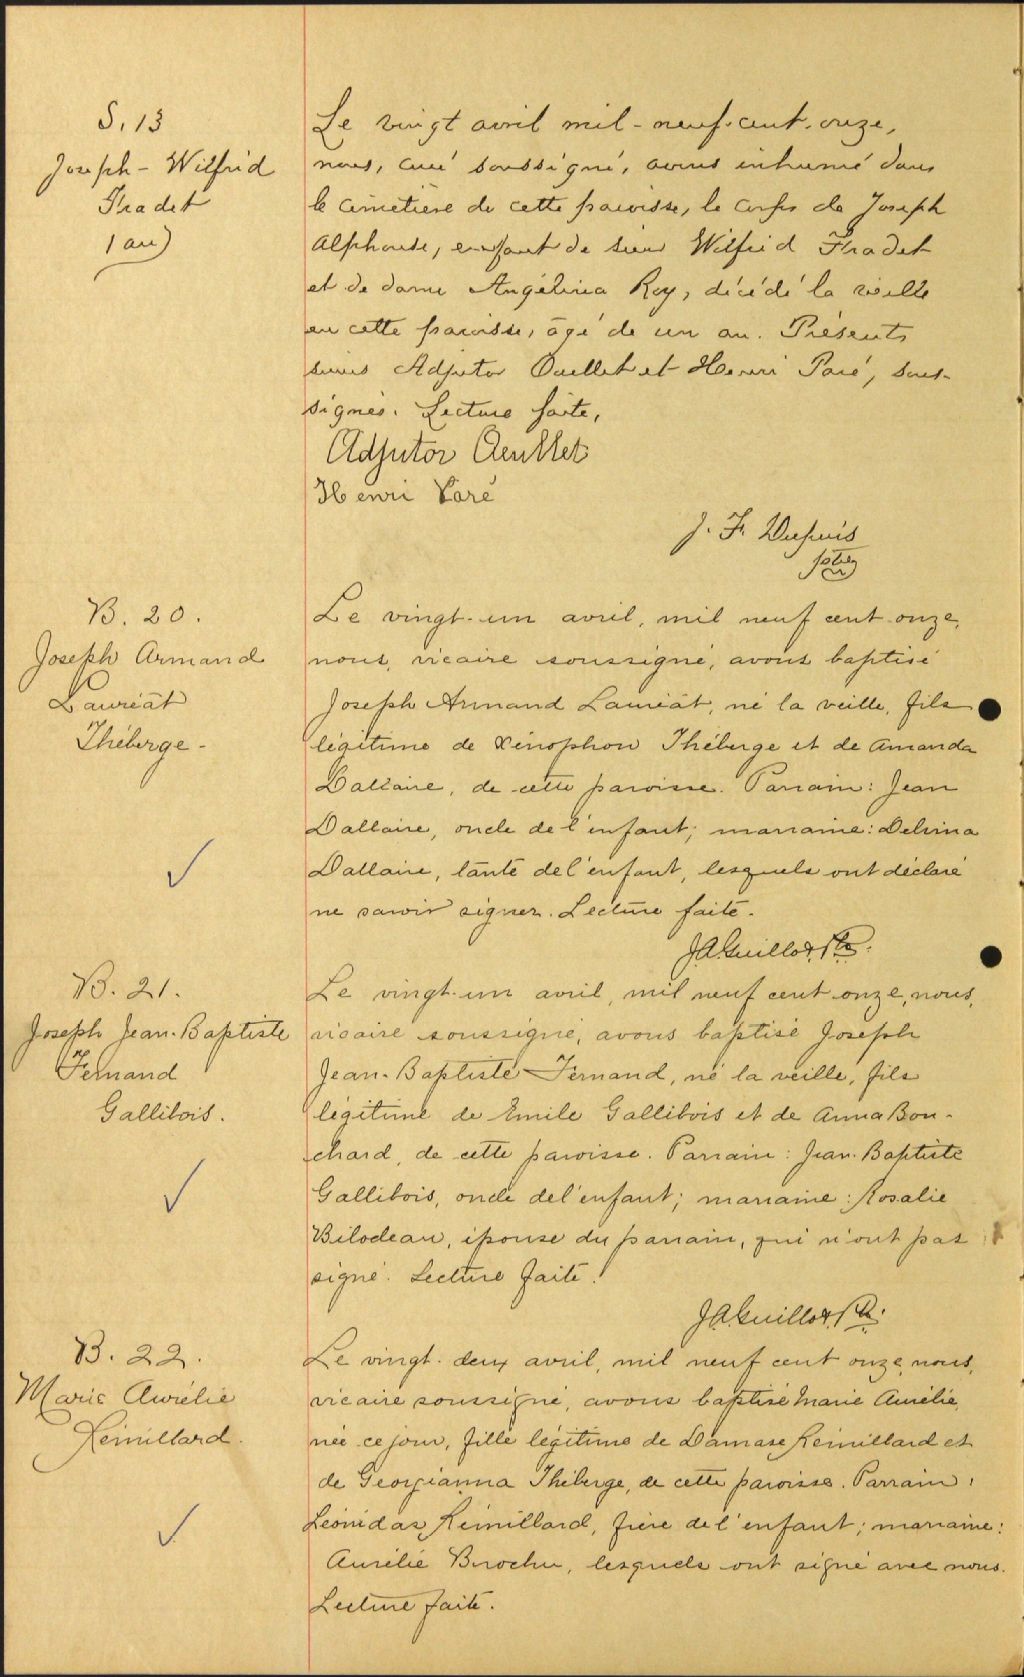 S. 13
Joseph - Wilfrid
Fradet
1 an)
Le vingt avril mil-neuf-cent-onze,
nous, curé soussigné, avons inhumé dans
le cimetière de cette paroisse, le corps de Joseph
Alphonse, enfant de sieur Wilfrid Fradet
et de dame Angélina Roy, décédé la veille
en cette paroisse, âgé de un an. Présents
sieurs Adjutor Ouellet et Henri Paré, sous-
signés. Lecture faite,
Adjutor Oeullet
Henri Paré
J. F. Dupuis
ptre
B. 20.
Joseph Armand
Lauréat
Théberge -
Le vingt-un avril, mil neuf cent onze,
nous, vicaire soussigné, avons baptisé
Joseph Armand Lauréat, né la veille, fils
légitime de Xénophon Théberge et de Amanda
Dallaire, de cette paroisse. Parrain: Jean
Dallaire, oncle de l'enfant; marraine: Delvina
Dallaire, tante de l'enfant, lesquels ont déclaré
ne savoir signer. Lecture faite.
J.A. Guillot, Ptre.
B. 21.
Joseph Jean-Baptiste
Fernand
Gallibois.
Le vingt-un avril, mil neuf cent onze, nous,
vicaire soussigné, avons baptisé Joseph
Jean-Baptiste Fernand, né la veille, fils
légitime de Emile Gallibois et de Anna Bou-
chard, de cette paroisse. Parrain: Jean-Baptiste
Gallibois, oncle de l'enfant; marraine: Rosalie
Bilodeau, épouse du parrain, qui n'ont pas
signé. Lecture faite.
J.A. Guillot, Ptr.
B. 22.
Marie Aurélie
Rémillard.
Le vingt-deux avril, mil neuf cent onze, nous,
vicaire soussigné, avons baptisé Marie Aurélie,
née ce jour, fille légitime de Damase Rémillard et
de Georgianna Théberge, de cette paroisse. Parrain:
Léonidas Rémillard, frère de l'enfant; marraine:
Aurélie Brochu, lesquels ont signé avec nous.
Lecture faite.